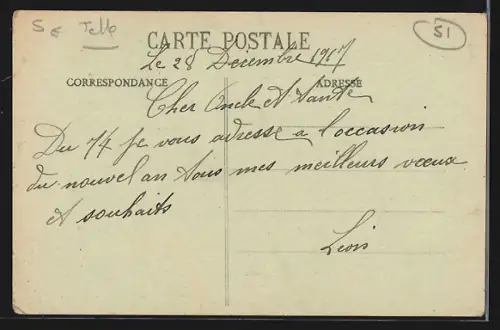 51
CARTE POSTALE
Le 28 Décembre 1917
CORRESPONDANCE
ADRESSE
Cher Oncle et Tante
Du 74 je vous adresse a l'occasion
du nouvel an tous mes meilleurs voeux
et souhaits
Léon